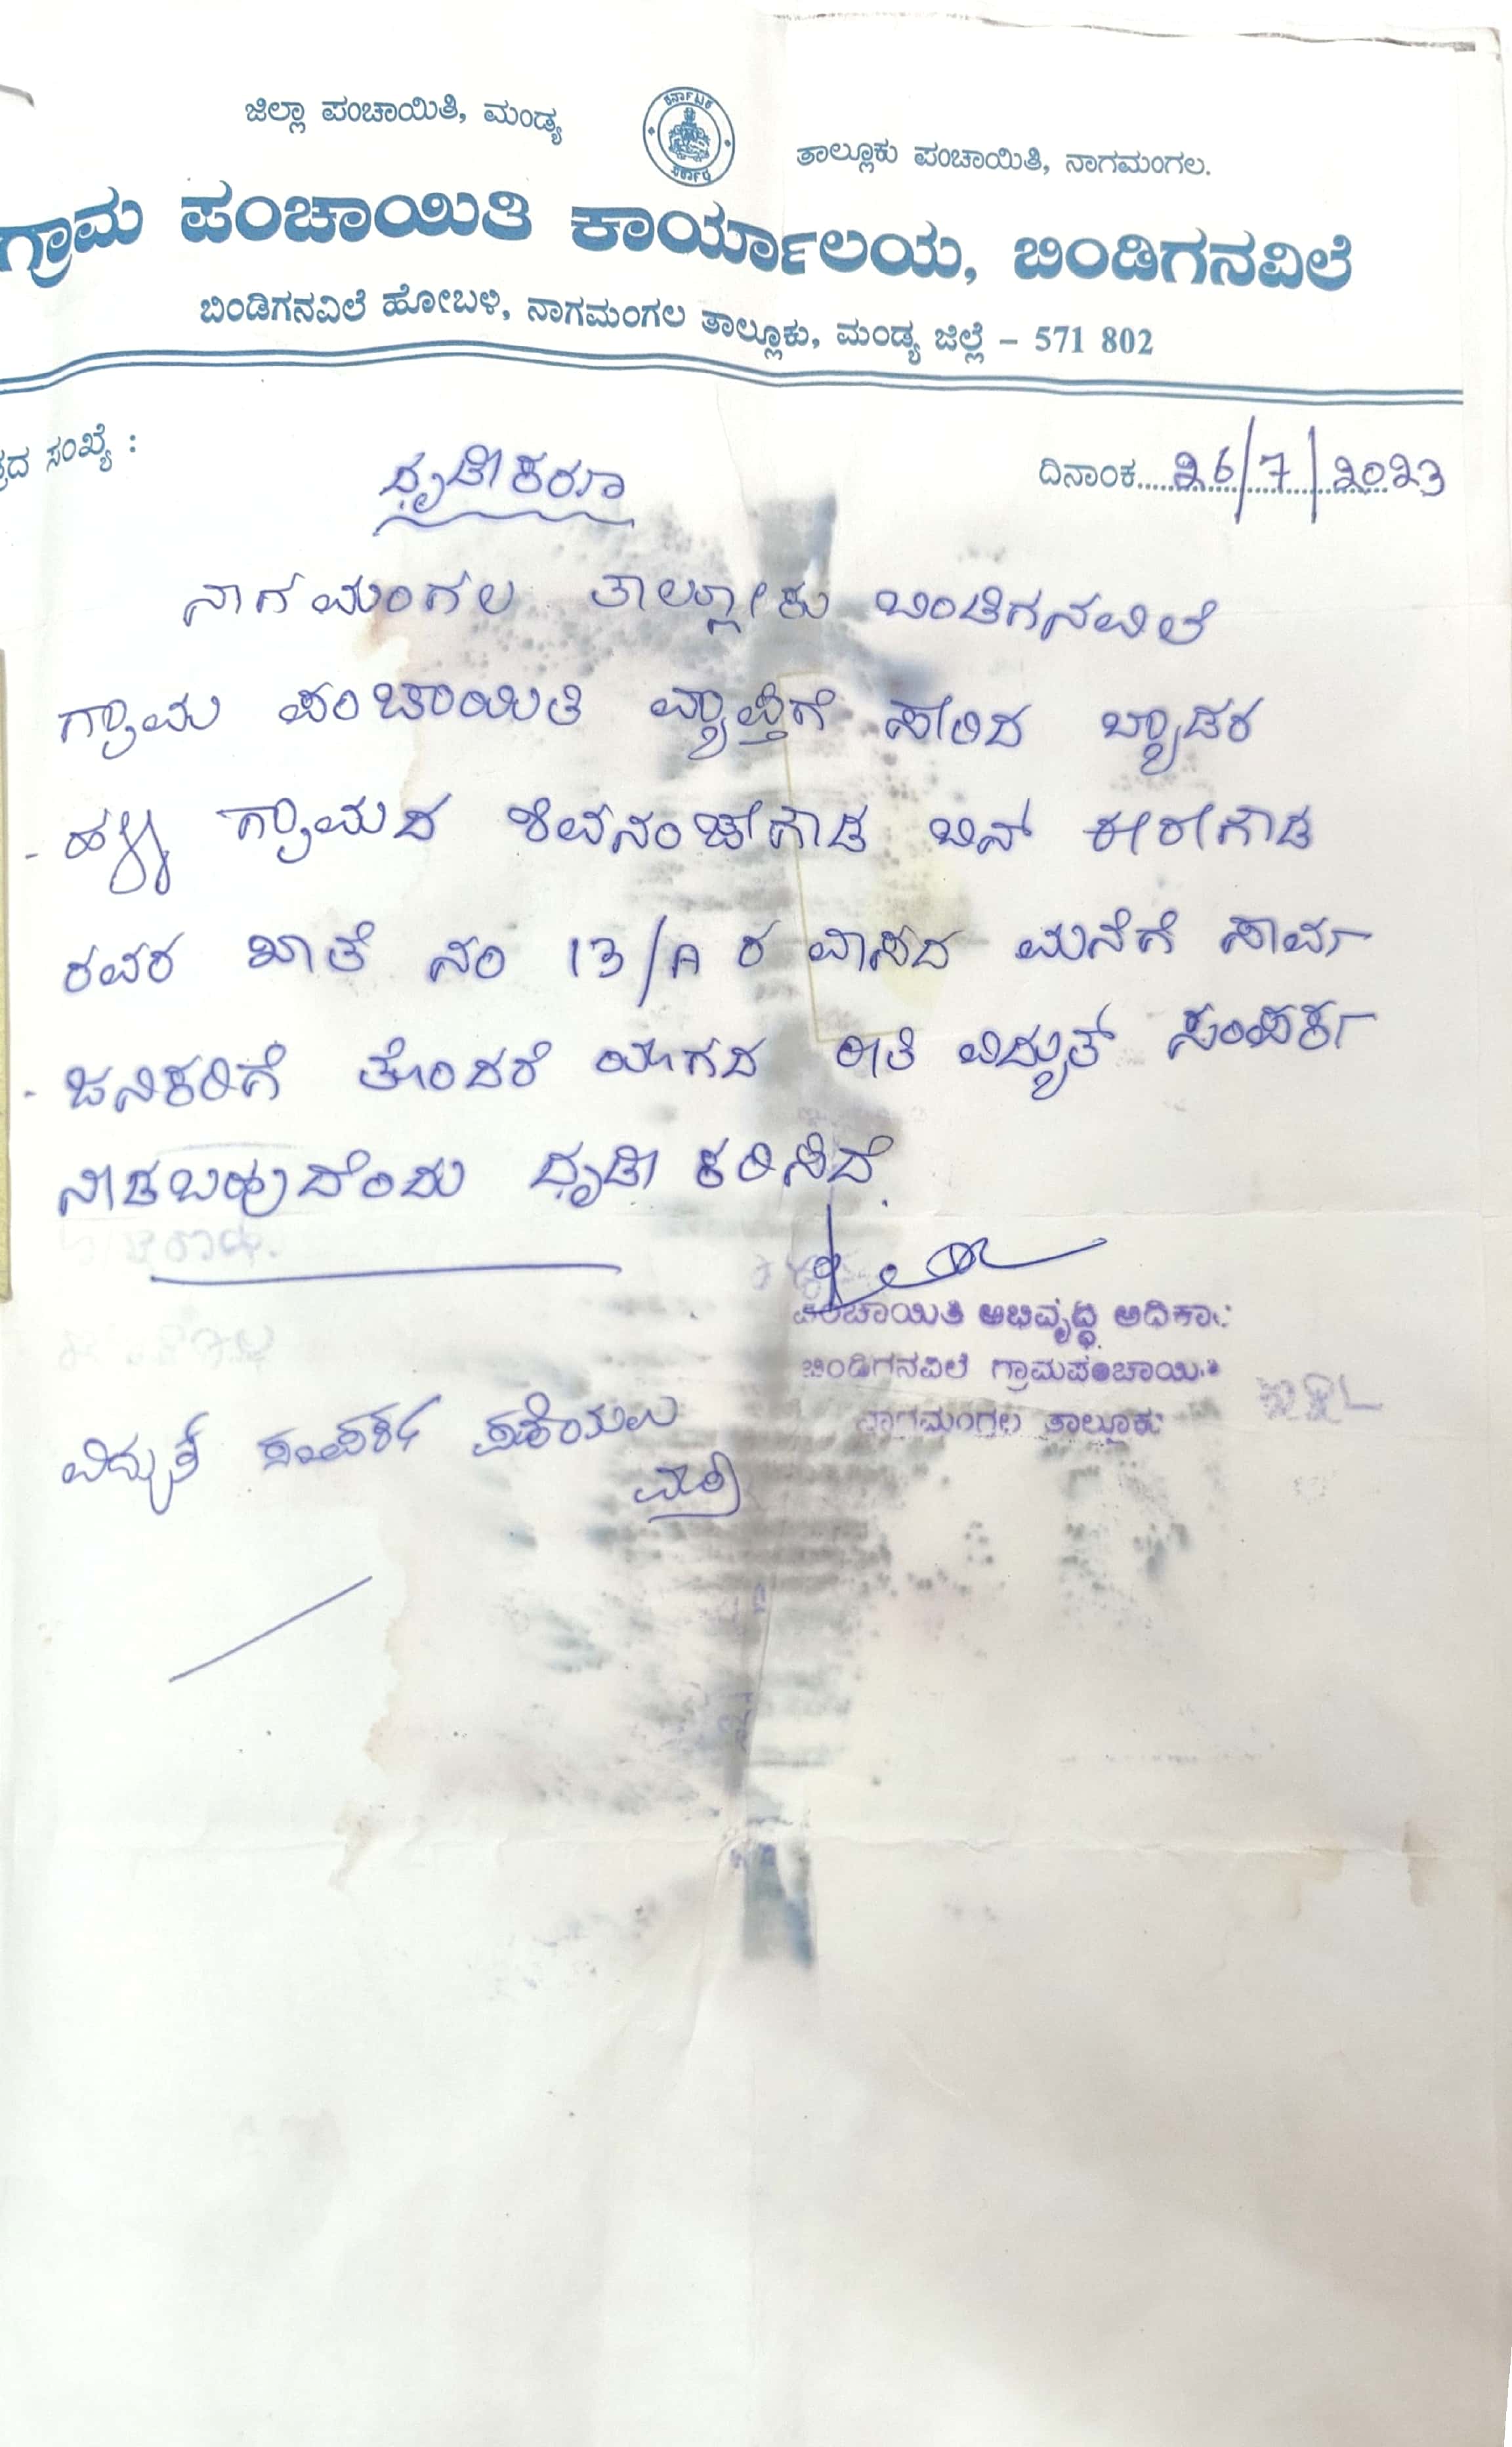 ಜಿಲ್ಲಾ ಪಂಚಾಯಿತಿ, ಮಂಡ್ಯ
ಕರ್ನಾಟಕ ಸರ್ಕಾರ
ತಾಲ್ಲೂಕು ಪಂಚಾಯಿತಿ, ನಾಗಮಂಗಲ.
ಗ್ರಾಮ ಪಂಚಾಯಿತಿ ಕಾರ್ಯಾಲಯ, ಬಿಂಡಿಗನವಿಲೆ
ಬಿಂಡಿಗನವಿಲೆ ಹೋಬಳಿ, ನಾಗಮಂಗಲ ತಾಲ್ಲೂಕು, ಮಂಡ್ಯ ಜಿಲ್ಲೆ – 571 802
ಸಂಖ್ಯೆ :
ದಿನಾಂಕ 26/7/2023
ನಾಗಮಂಗಲ ತಾಲ್ಲೂಕು ಬಿಂಡಿಗನವಿಲೆ
ಗ್ರಾಮ ಪಂಚಾಯಿತಿ ವ್ಯಾಪ್ತಿಗೆ ಸೇರಿದ ಬ್ಯಾಡರ
- ಹಳ್ಳಿ ಗ್ರಾಮದ ಶಿವನಂಜೇಗೌಡ ಬಿನ್ ಕರೀಗೌಡ
ರವರ ಖಾತೆ ನಂ 13/A ರ ವಾಸದ ಮನೆಗೆ ಸಾರ್ವ
- ಜನಿಕರಿಗೆ ತೊಂದರೆ ಯಾಗದ ರೀತಿ ವಿದ್ಯುತ್ ಸಂಪರ್ಕ
ನೀಡಬಹುದೆಂದು ಧೃಡೀಕರಿಸಿದೆ.
ಪಂಚಾಯಿತಿ ಅಭಿವೃದ್ಧಿ
ಬಿಂಡಿಗನವಿಲೆ
ನಾಗಮಂಗಲ ತಾಲ್ಲೂಕು
ವಿದ್ಯುತ್ ಸಂಪರ್ಕ ಪಡೆಯಲು
ಮಾತ್ರ